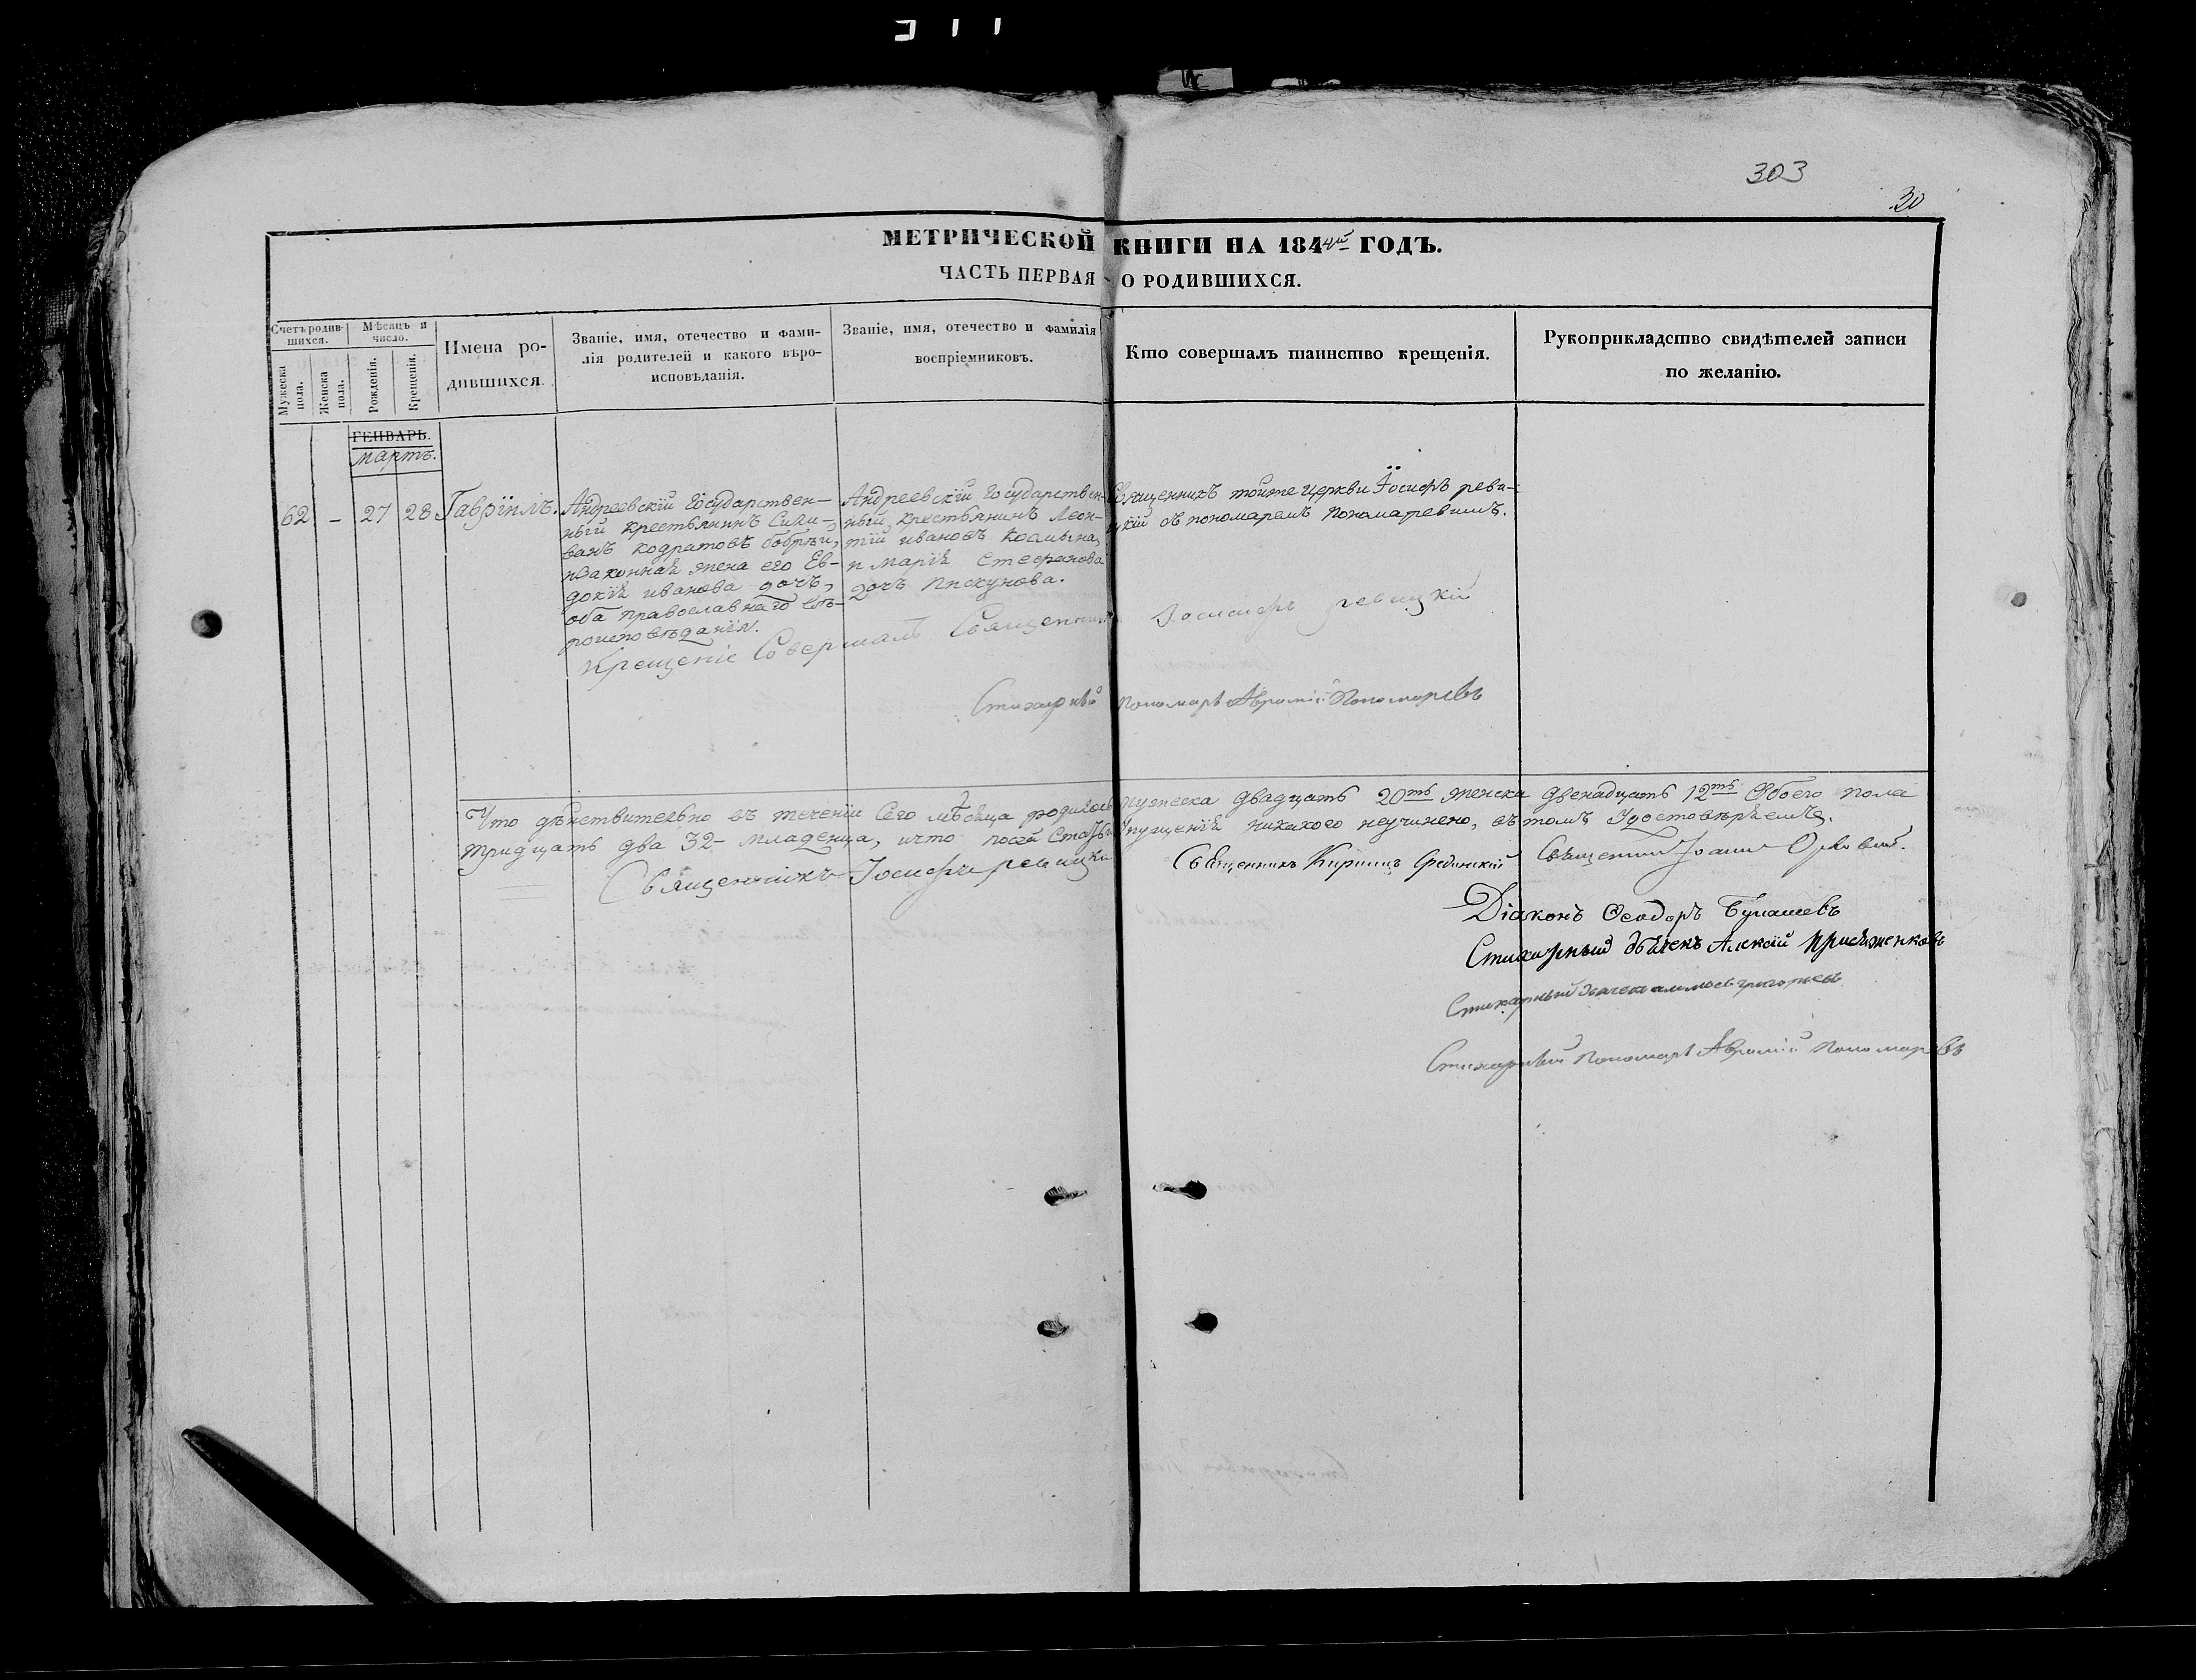 311
303
30
МЕТРИЧЕСКОЙ КНИГИ НА 1844й ГОДЪ.
ЧАСТЬ ПЕРВАЯ О РОДИВШИХСЯ.
Счетъ родившихся.
Мужеска пола.
Женска пола.
Мѣсяцъ и число.
Рожденія.
Крещенія.
Имена родившихся.
Званіе, имя, отечество и фами-
лія родителей и какого вѣро-
исповѣданія.
Званіе, имя, отечество и фамилія
воспріемниковъ.
Кто совершалъ таинство крещенія.
Рукоприкладство свидѣтелей записи
по желанію.
ГЕНВАРЬ.
мартъ.
62 – 27 28 Гавріилъ.
Андреевскій Государствен-
ный крестьянинъ
кодратовъ
изаконная жена его Ев-
докія иванова дочь,
оба православнаго вѣ-
роисповѣданія.
Андреевскій Государствен-
ный крестьянинъ Леон-
тій ивановъ
и марія Стефанова
дочь Пискунова.
Священникъ тойже церкви Іосифъ реви-
цкій съ пономаремъ Пономаревымъ.
Крещеніе Совершалъ Священникъ Іосифъ ревицкій
Стихарный пономарь Аврамій Пономаревъ
Что дѣйствительно въ теченіи Сего мѣсяца родилось мужеска двадцать 20ть женска двенадцать 12ть Обоего пола
тридцать два 32– младенца, ичто посей Статьи упущенія никакого неучинено, въ томъ Удостовѣряемъ.
Священникъ Іосифъ ревицкій
Священникъ Кириллъ
Священникъ Іоаннъ
Діаконъ Ѳеодоръ
Стихарный дьячекъ Алексій
Стихарный дьячекъ
Стихарный Пономарь Аврамій Пономаревъ